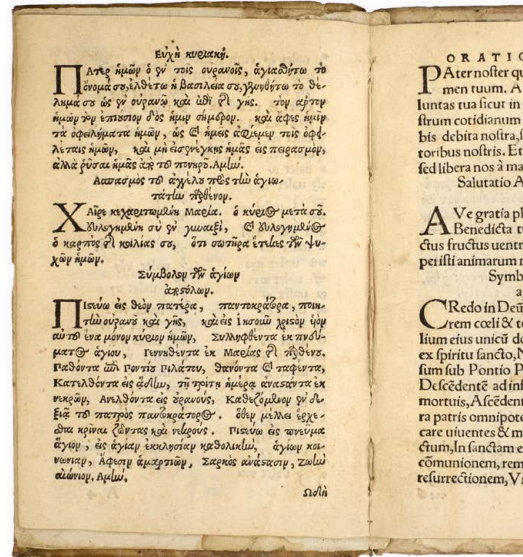 Εὐχὴ κυριακή.
ΠΑτερ ἡμῶν ὁ ἐν τοῖς οὐρανοῖς, ἁγιασθήτω τὸ
ὄνομά σου, ἐλθέτω ἡ βασιλεία σου, γενηθήτω τὸ θέ-
λημά σου ὡς ἐν οὐρανῷ καὶ ἐπὶ τῆς γῆς. τὸν ἄρτον
ἡμῶν τὸν ἐπιούσιον δὸς ἡμῖν σήμερον. καὶ ἄφες ἡμῖν
τὰ ὀφειλήματα ἡμῶν, ὡς καὶ ἡμεῖς ἀφίεμεν τοῖς ὀφει-
λέταις ἡμῶν, καὶ μὴ εἰσενέγκῃς ἡμᾶς εἰς πειρασμὸν,
ἀλλὰ ῥῦσαι ἡμᾶς ἀπὸ τοῦ πονηροῦ. Ἀμήν.
Ἀσπασμὸς τοῦ ἀγγέλου πρὸς τὴν ἁγιω-
τάτην παρθένον.
ΧΑῖρε κεχαριτωμένη Μαρία. ὁ κύριος μετὰ σοῦ.
Εὐλογημένη σὺ ἐν γυναιξὶ, καὶ εὐλογημένος
ὁ καρπὸς τῆς κοιλίας σου, ὅτι σωτῆρα ἔτεκες τῶν ψυ-
χῶν ἡμῶν.
Σύμβολον τῶν ἁγίων
ἀποστόλων.
ΠΙστεύω εἰς θεὸν πατέρα, παντοκράτορα, ποιη-
τὴν οὐρανοῦ καὶ γῆς, καὶ εἰς Ἰησοῦν χριστὸν υἱὸν
αὐτοῦ ἕνα μόνον κύριον ἡμῶν, Συλληφθέντα ἐκ πνεύ-
ματος ἁγίου, Γεννηθέντα ἐκ Μαρίας τῆς παρθένου.
Παθόντα ἐπὶ Ποντίου Πιλάτου, θανόντα καὶ ταφέντα,
Κατελθόντα εἰς ᾅδην, τῇ τρίτῃ ἡμέρᾳ ἀναστάντα ἐκ
νεκρῶν, Ἀνελθόντα εἰς οὐρανοὺς, Καθεζόμενον ἐν δε-
ξιᾷ τοῦ πατρὸς παντοκράτορος. ὅθεν μέλλει ἔρχε-
σθαι κρῖναι ζῶντας καὶ νεκρούς. Πιστεύω εἰς πνεῦμα
ἅγιον, εἰς ἁγίαν ἐκκλησίαν καθολικὴν, ἁγίων κοι-
νωνίαν, Ἄφεσιν ἁμαρτιῶν, Σαρκὸς ἀνάστασιν, Ζωὴν
αἰώνιον. Ἀμήν.
Ωσὴ
ORATIO
PAter noster qu
men tuum. A
luntas tua sicut in
strum cotidianum
bis debita nostra, s
toribus nostris. Et
sed libera nos à ma
Salutatio A
AVe gratia pl
Benedicta tu
ctus fructus uentr
peristi animarum n
Symb
a
CRedo in Deũ
rem cœli & t
lium eius unicũ do
ex spiritu sancto, N
sum sub Pontio P
Descẽdentẽ ad inf
mortuis, Ascẽdent
ra patris omnipote
care uiuentes & m
ctum, In sanctam e
cõmunionem, rem
resurrectionem, Vi